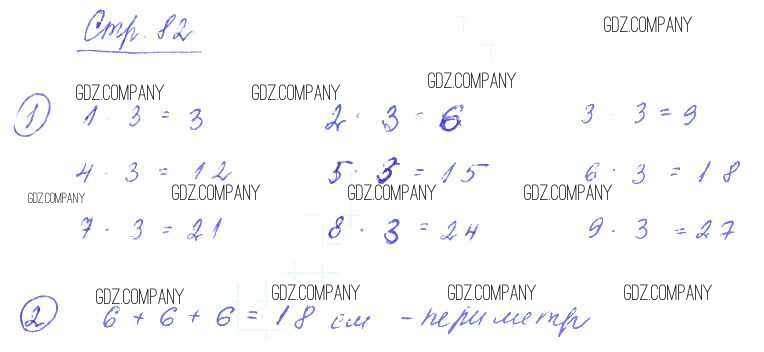 Стр. 82
GDZ.COMPANY
GDZ.COMPANY GDZ.COMPANY GDZ.COMPANY
1 1 · 3 = 3 2 · 3 = 6 3 · 3 = 9
4 · 3 = 12 5 · 3 = 15 6 · 3 = 18
GDZ.COMPANY GDZ.COMPANY GDZ.COMPANY GDZ.COMPANY
7 · 3 = 21 8 · 3 = 24 9 · 3 = 27
GDZ.COMPANY GDZ.COMPANY GDZ.COMPANY GDZ.COMPANY
2 6 + 6 + 6 = 18 см - периметр